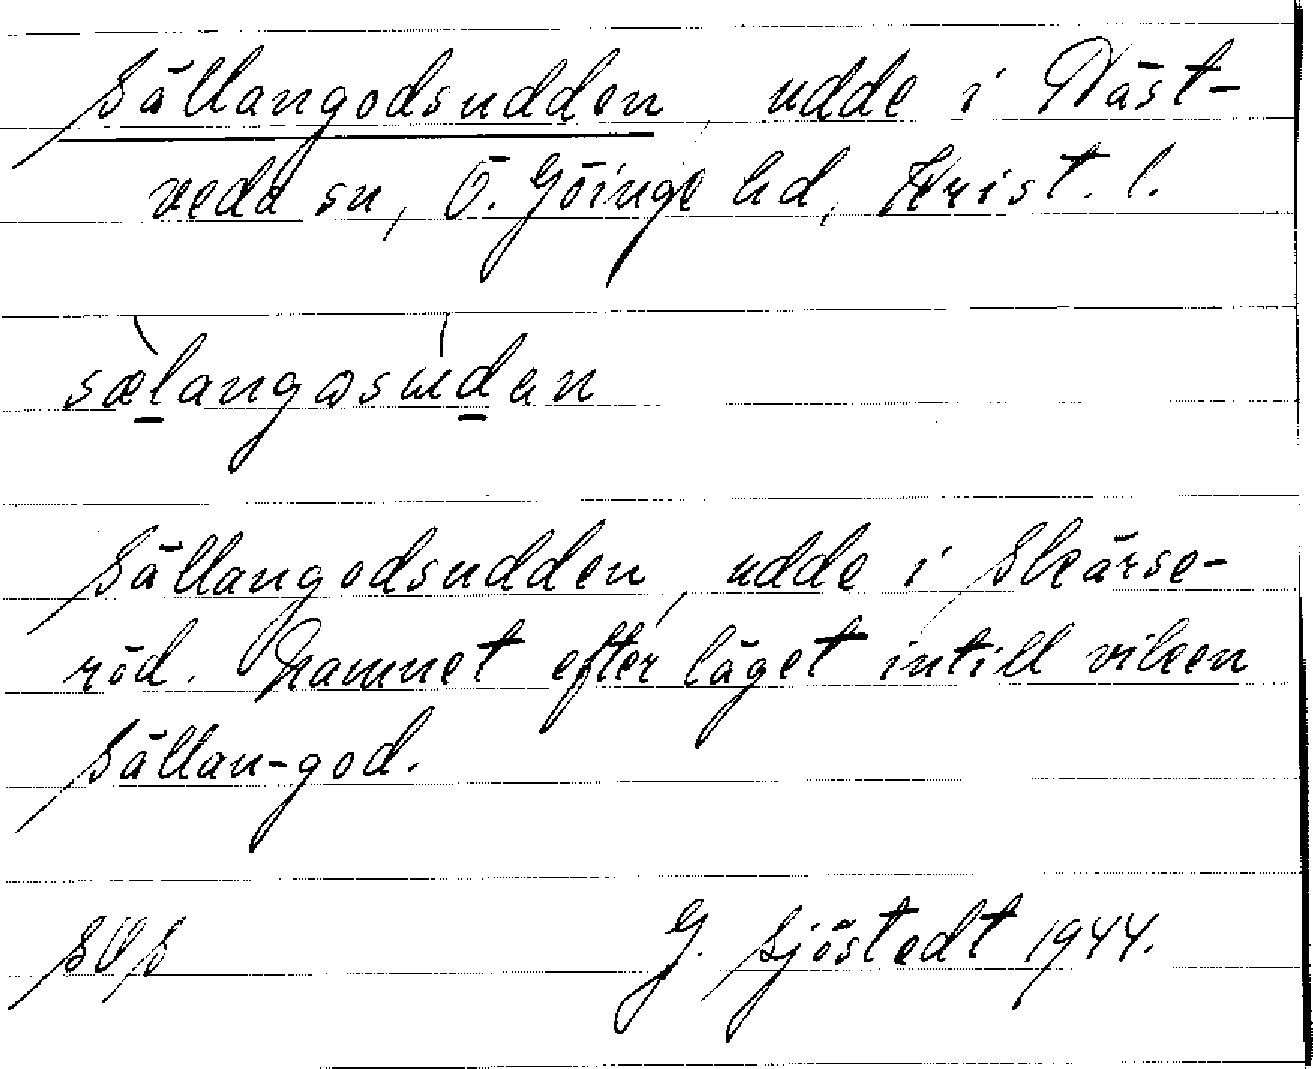 Sällangodsudden, udde i Näst-
veda sn, Ö. Göinge hd, Krist. l.
sælangωsuden
Sällangodsudden, udde i Skärse-
röd. Namnet efter läget intill viken
Sällan-god.
SOS G. Sjöstedt 1944.